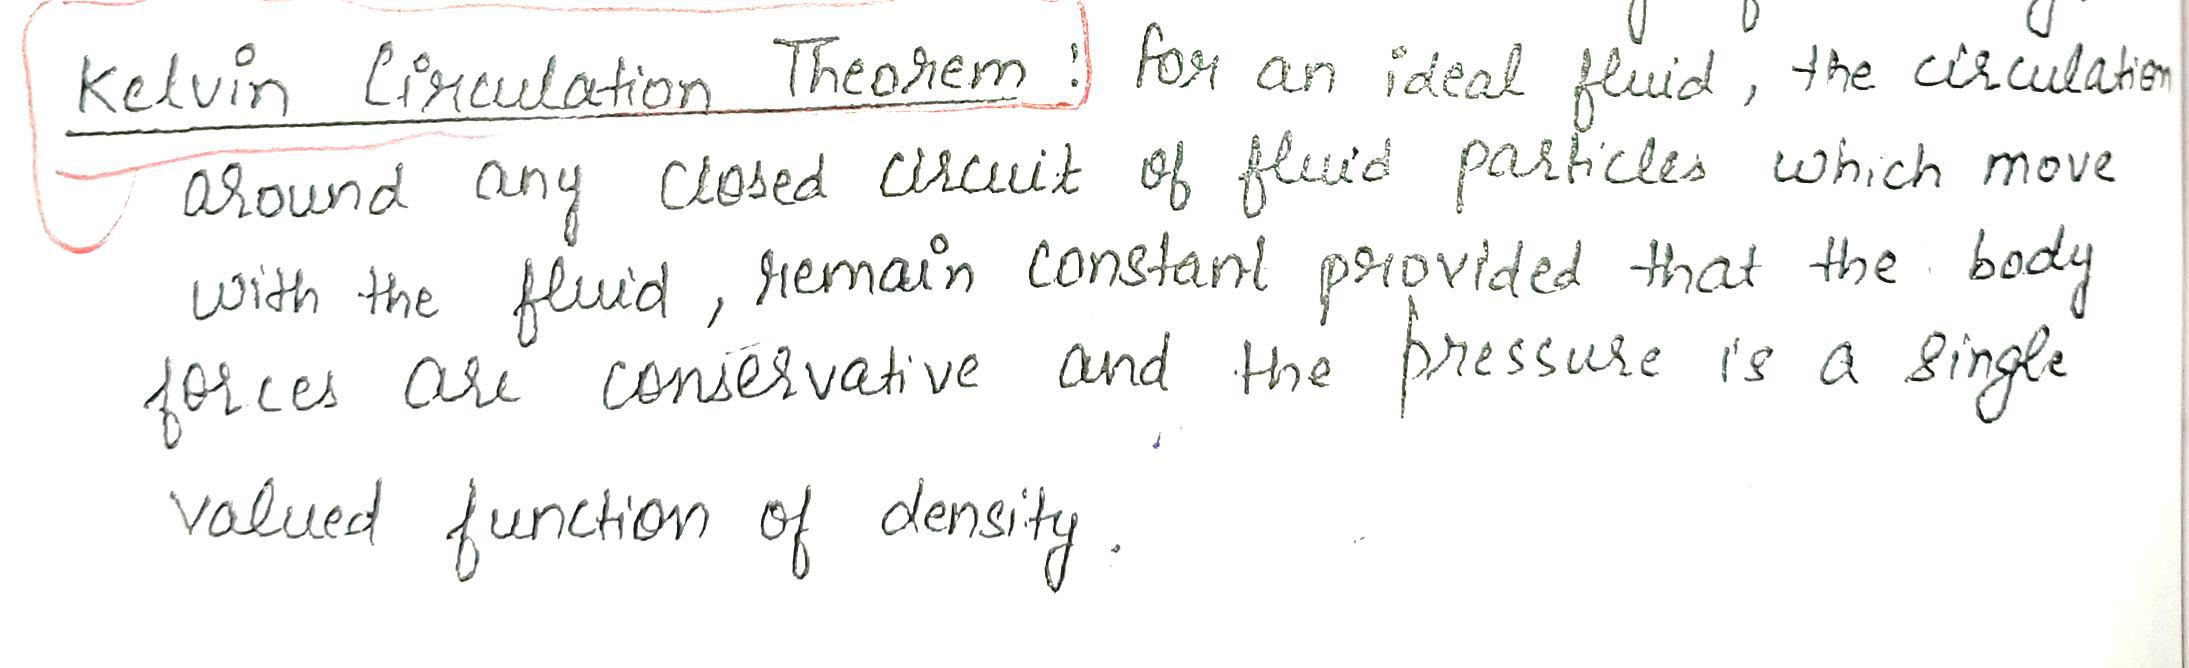 Kelvin Circulation Theorem : for an ideal fluid, the circulation
around any closed circuit of fluid particles which move
with the fluid, remain constant provided that the body
forces are conservative and the pressure is a single
valued function of density.